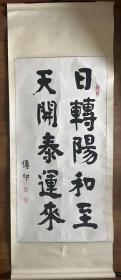 日轉陽和至
天開泰運來
傳印